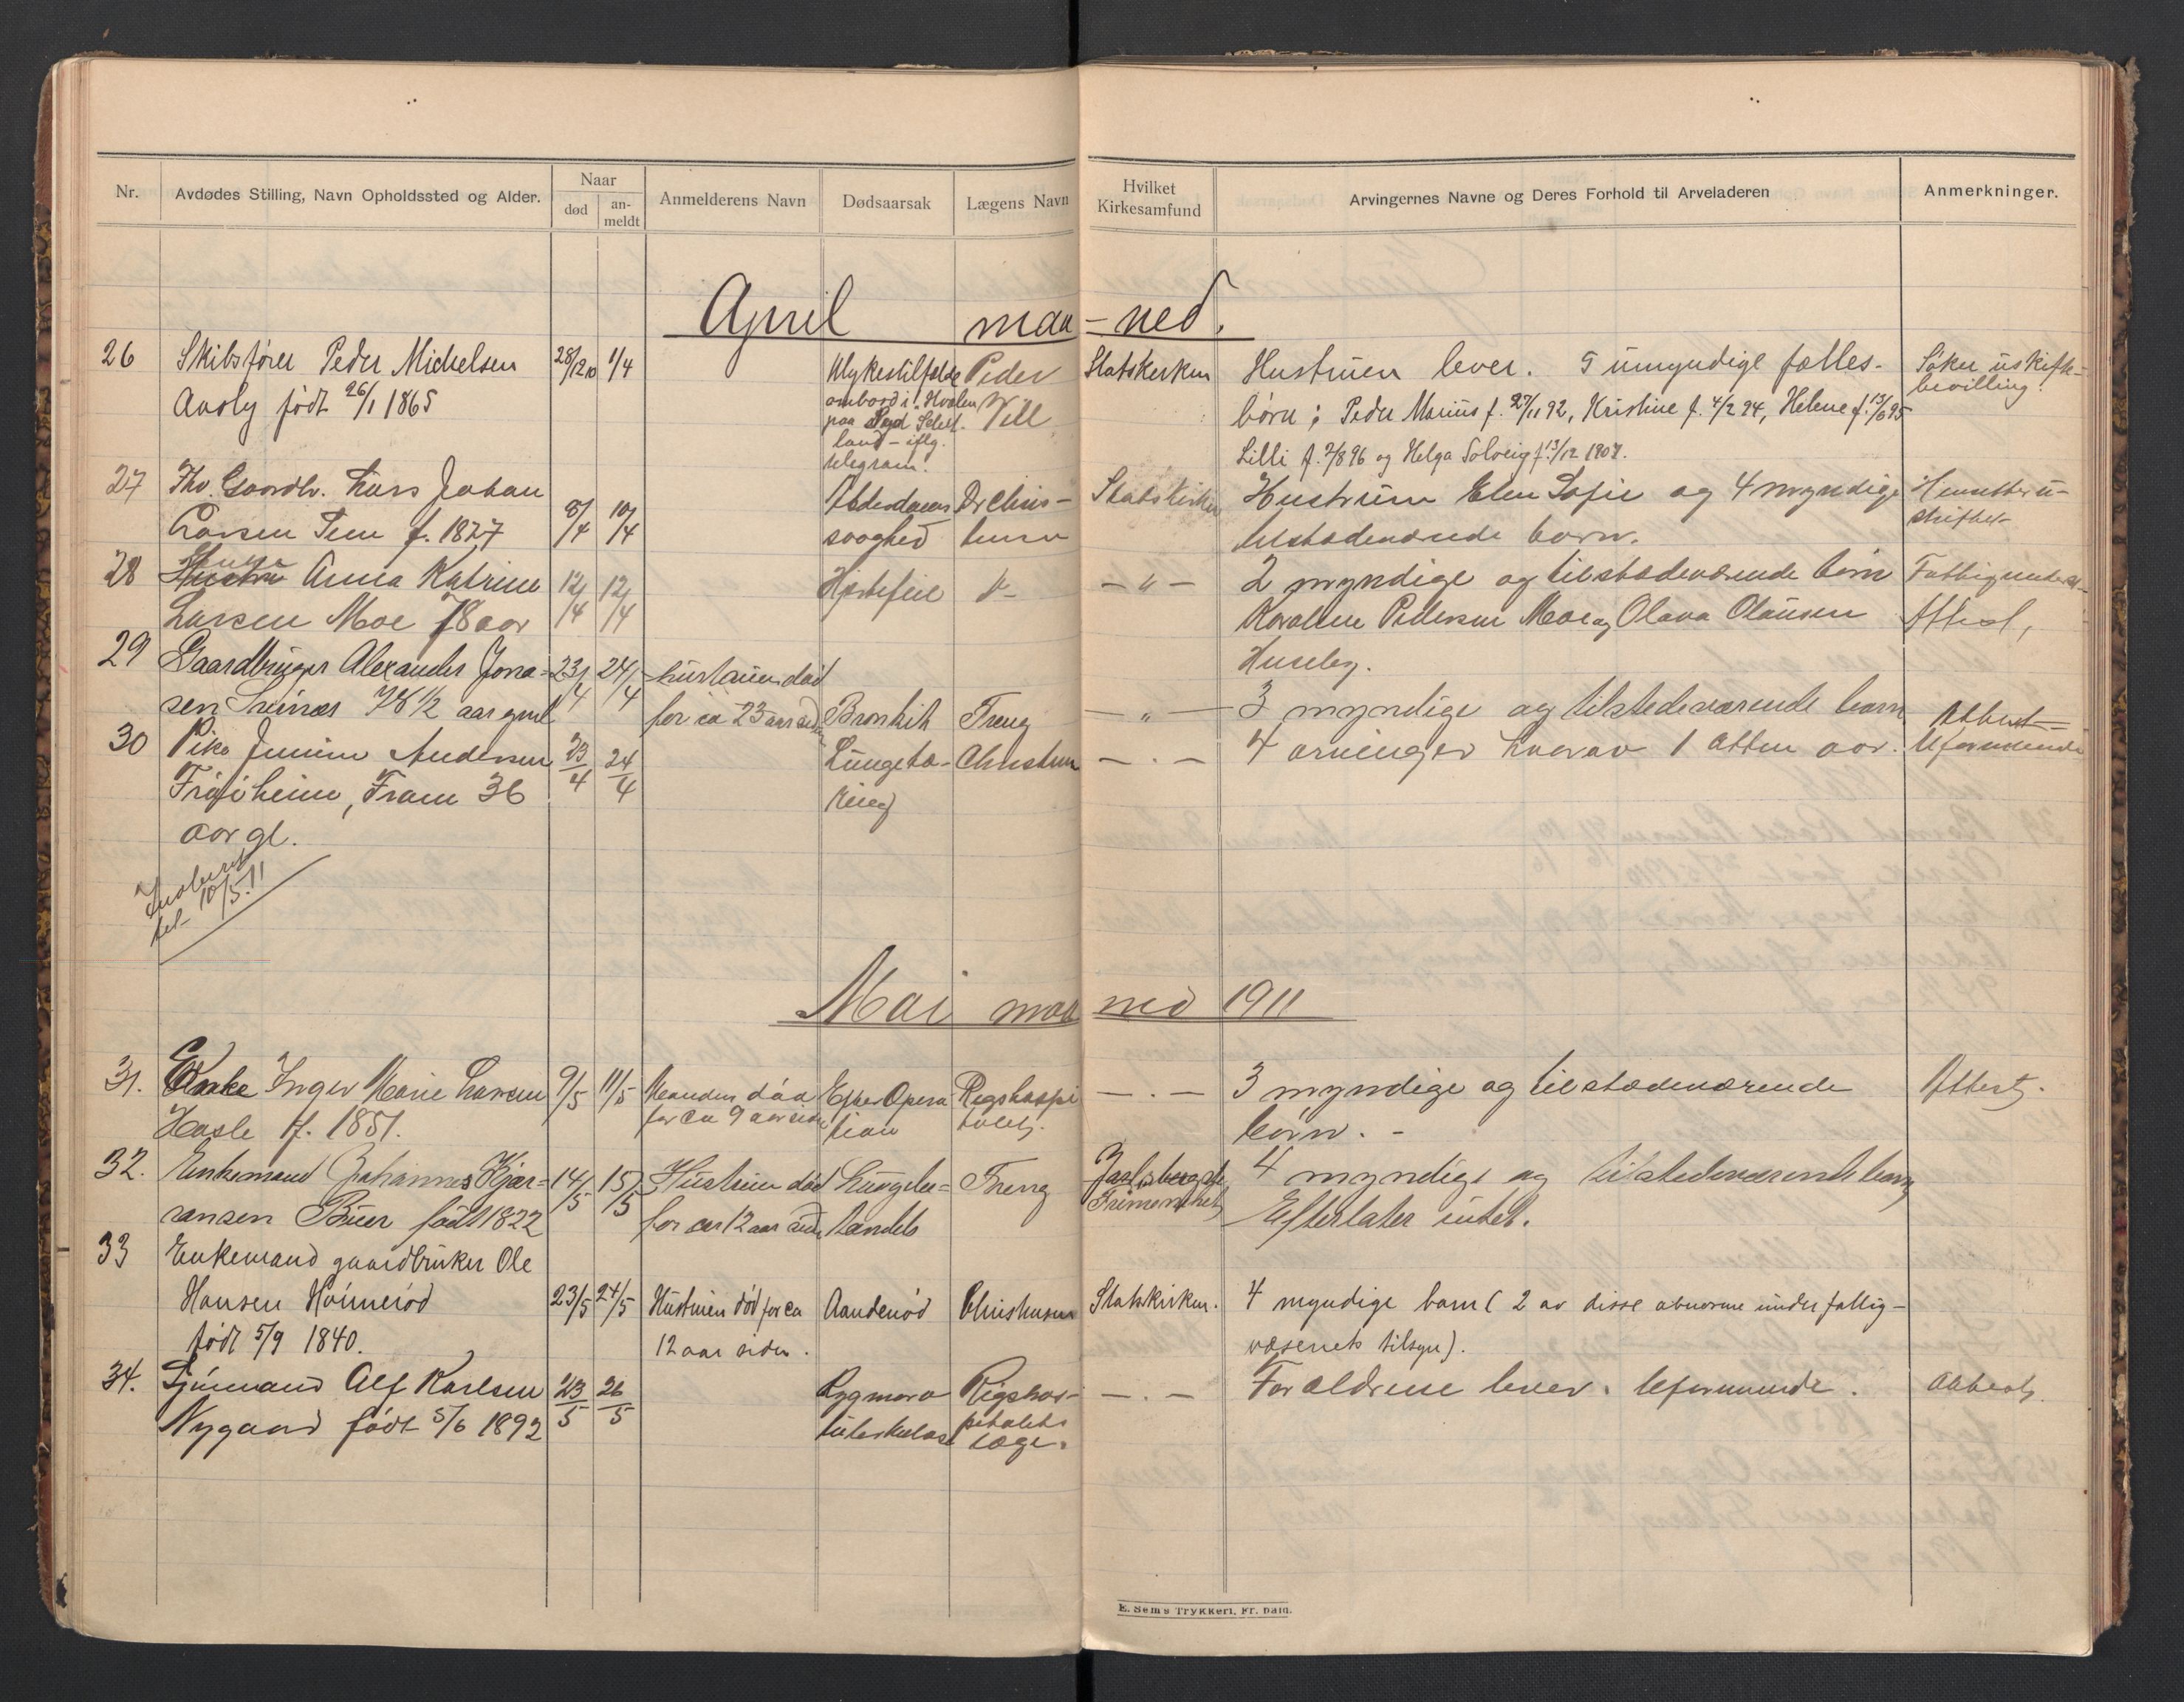 Nr.
Avdødes Stilling, Navn Opholdssted og Alder.
Naar
død
an-
meldt
Anmelderens Navn
Dødsaarsak
Lægens Navn
Hvilket
Kirkesamfund
Arvingernes Navne og Deres Forhold til Arveladeren
Anmerkninger.
April maa-ned.
26 Skibsfører Peder Michelsen 28/12 10 1/4 Ulykestilfelde Peder Statskirken Hustruen lever. 5 umyndige fælles- Søker uskifte-
bevilling.
født 26/1 1865 ombord i "Hvalen Vell børn: Peder Marius f. 27/11 92, Kristine f. 4/2 94, Helene f. 13/6 95
paa Syd Schetl.
land - iflg.
telegram.
Lilli f. 7/8 96 og Helga Solveig f. 13/12 1907.
27 Fhv. Gaardbr. Lars Johan 8/4 10/4 Alderdoms Dr Chris- Statskirken Hustruen Elen Sofie og 4 myndige
Larsen Tem f. 1827 svaghed tensen tilstedeværende barn.
28 Enke Anna Katrine 12/4 12/4 Hjertefeil - " - 2 myndige og tilstedeværende børn
Larsen Moe 78 aar Pedersen Moe og Olava Olausen Attest,
Huseby.
29 Gaardbruger Alexander Jona- 23/4 24/4 hustruen død
sen 78 1/2 aar gml for ca 23 aar siden Bronkit Treng - " - 3 myndige og tilstedeværende barn Attest
30 Pike Andersen 23/4 24/4 Lungetæ- Christensen - . - 4 arvinger hvorav 1 atten aar. Uformuende
Frøiheim, Fram 36 ring
aar gl.
Indberet
10/5 11
Mai maaned 1911
31. Enke Inger Marie Larsen 9/5 11/5 Manden død Efter Opera Rigshospi - . - 3 myndige og tilstedeværende Attest.
Hasle f. 1851. for ca 9 aar siden tion talet. børn. -
32. Enkemand Johannes Kjær- 14/5 15/5 Hustruen død Lungebe- Treng Jarlsberg 4 myndige og tilstedeværende barn
ransen Buer født 1822 for ca 12 aar siden tændels Frimenighet Efterlater intet.
33 Enkemand gaardbruker Ole
Hansen Hoimerød 23/5 24/5 Hustruen død for ca Aandenød Christensen Statskirken. 4 myndige barn (2 av disse abnorme under fattig-
født 5/9 1840. 12 aar siden. væsenets tilsyn).
34. Sjømand Alf Karlsen 23/5 26/5 Rygmarv Rigshos- - . - Forældrene lever. Uformuende. Attest.
Nygaard født 5/6 1892 tuberkulose pitalets
læge.
E. Sem's Trykkeri, Fr. hald.